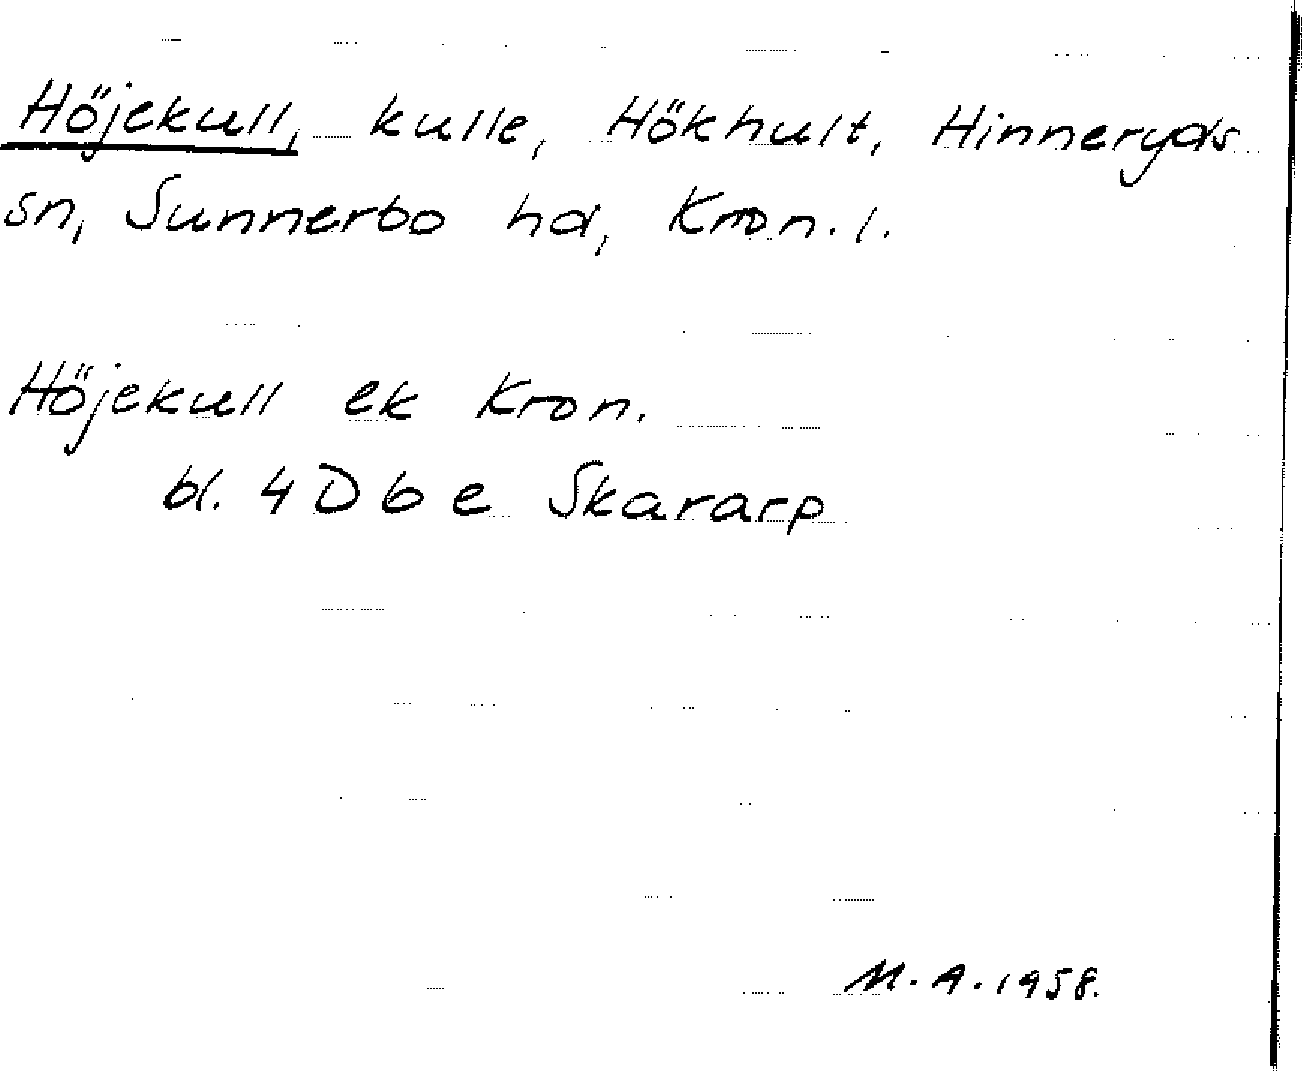 Höjekull, kulle, Hökhult, Hinneryds
sn, Sunnerbo hd, Kron. l.
Höjekull ek Kron.
bl. 4 D 6 e Skararp
M. A. 1958.